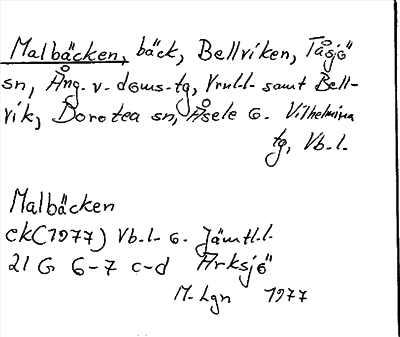 Malbäcken, bäck, Bellviken, Tåsjö
sn, Ång. v. doms-tg, Vrnl-l. samt Bell-
vik, Dorotea sn, Åsele o. Vilhelmina
tg, Vb. l.
Malbäcken
ek (1977) Vb. l- o. Jämtl. l.
21 G 6-7 c-d Arksjö
M-Lgn 1977